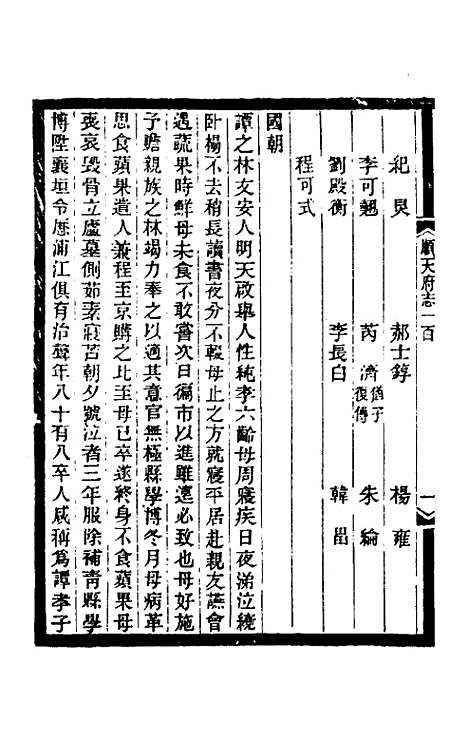 順天府志一百
一
紀炅 郝士錞 楊雍
李可翹 芮濟 猶子復傳 朱綸
劉殿衡 李長白 韓畕
程可式
國朝
譚之林文安人明天啟舉人性純孝六齡母周寢疾日夜涕泣繞
卧榻不去稍長讀書夜分不輟母止之方就寢平居赴親友讌會
遇蔬果時鮮母未食不敢嘗次日徧市以進雖遠必致也母好施
予贍親族之林竭力奉之以適其意官無極縣學博冬月母病革
思食蘋果遣人兼程至京購之比至母已卒遂終身不食蘋果母
喪哀毀骨立廬墓側茹素寢苫朝夕號泣者三年服除補青縣學
博陞襄垣令歷浦江俱有治聲年八十有八卒人咸稱爲譚孝子